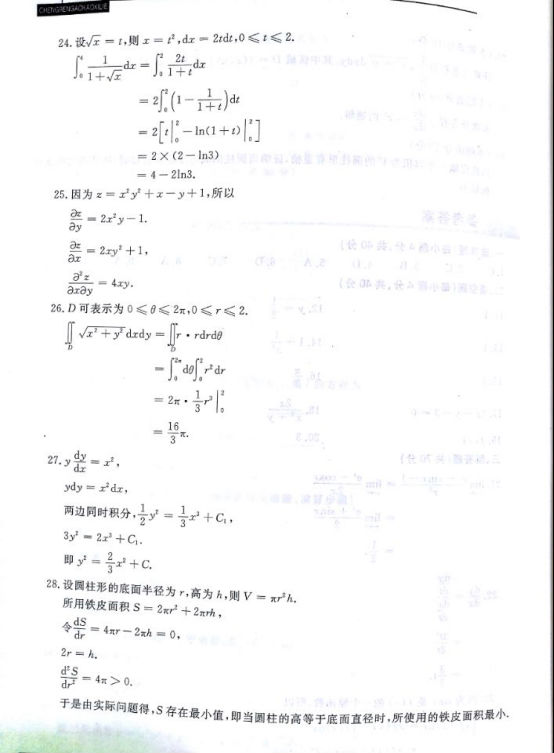 CHENGRENGAOKAOXILIE
24. 设√x = t,则 x = t², dx = 2tdt, 0 ≤ t ≤ 2.
∫₀⁴ 1/(1+√x) dx = ∫₀² 2t/(1+t) dt
= 2∫₀² (1 − 1/(1+t)) dt
= 2[t|₀² − ln(1+t)|₀²]
= 2×(2−ln3)
= 4−2ln3.
25. 因为 z = x²y² + x − y + 1,所以
∂z/∂y = 2x²y − 1.
∂z/∂x = 2xy² + 1,
∂²z/∂x∂y = 4xy.
26. D 可表示为 0 ≤ θ ≤ 2π, 0 ≤ r ≤ 2.
∬_D √(x² + y²) dxdy = ∬_D r · rdrdθ
= ∫₀^{2π} dθ ∫₀² r² dr
= 2π · 1/3 r³|₀²
= 16/3 π.
27. y dy/dx = x²,
ydy = x²dx,
两边同时积分, 1/2 y² = 1/3 x³ + C₁,
3y² = 2x³ + C₁.
即 y² = 2/3 x³ + C.
28. 设圆柱形的底面半径为 r,高为 h,则 V = πr²h.
所用铁皮面积 S = 2πr² + 2πrh,
令 dS/dr = 4πr − 2πh = 0,
2r = h.
d²S/dr² = 4π > 0.
于是由实际问题得,S 存在最小值,即当圆柱的高等于底面直径时,所使用的铁皮面积最小.